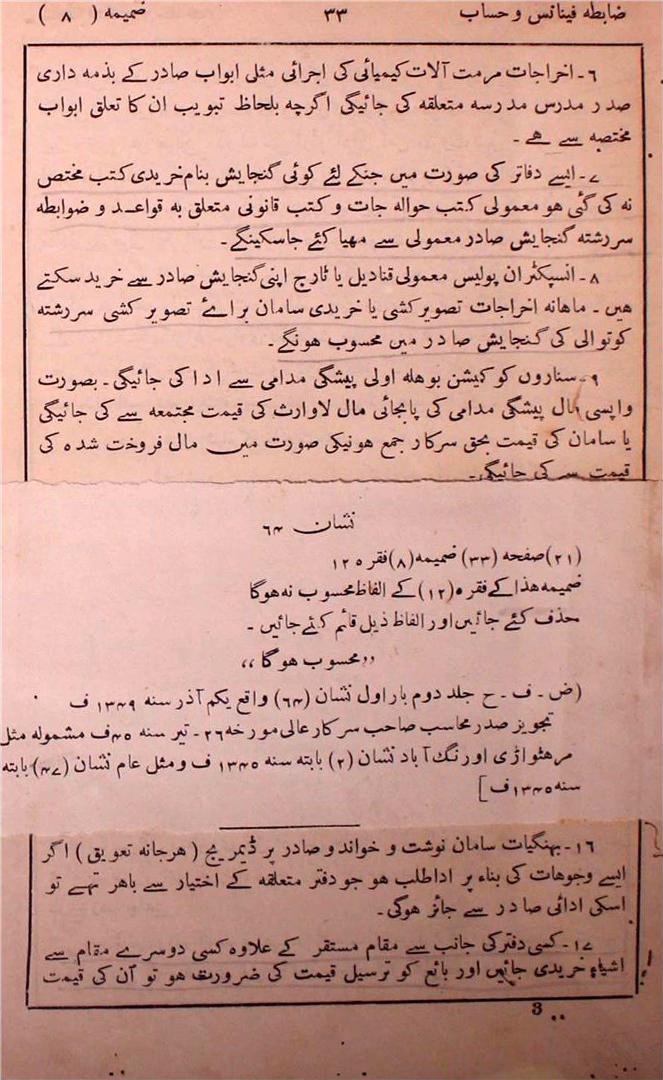 ضابطہ فینانس و حساب ۳۳ ضمیمہ ( ۸ )
۶ ۔ اخراجات مرمت آلات کیمیائی کی اجرائی مثل ابواب صادر کے بذمہ داری
صدر مدرس مدرسہ متعلقہ کی جائیگی اگرچہ بلحاظ تبویب ان کا تعلق ابواب
مختصہ سے ہے ۔
۷ ۔ ایسے دفاتر کی صورت میں جنکے لئے کوئی گنجایش بنام خریدی کتب مختص
نہ کی گئی ہو معمولی کتب حوالہ جات و کتب قانونی متعلق بہ قواعد و ضوابطہ
سررشتہ گنجایش صادر معمولی سے مہیا کئے جاسکینگے ۔
۸ ۔ انسپکٹران پولیس معمولی قنادیل یا ٹارچ اپنی گنجایش صادر سے خرید سکتے
ہیں ۔ ماہانہ اخراجات تصویر کشی یا خریدی سامان برائے تصویر کشی سررشتہ
کوتوالی کی گنجایش صادر میں محسوب ہونگے ۔
۹ ۔ سناروں کو کمیشن بوہلہ اولی پیشگی مدامی سے ادا کی جائیگی ۔ بصورت
واپسی مال پیشگی مدامی کی پابجائی مال لاوارث کی قیمت مجتمعہ سے کی جائیگی
یا سامان کی قیمت بحق سرکار جمع ہونیکی صورت میں مال فروخت شدہ کی
قیمت سے کی جائیگی ۔
نشان ۶۴
(۲۱) صفحہ (۳۳) ضمیمہ (۸) فقرہ ۱۲
ضمیمہ ھذا کے فقرہ (۱۲) کے الفاظ محسوب نہ ہوگا
حذف کئے جائیں اور الفاظ ذیل قائم کئے جائیں ۔
,,محسوب ہوگا،،
(ض ۔ ف ۔ ح جلد دوم بار اول نشان (۶۴) واقع یکم آذر سنہ ۱۳۴۹ ف
تجویز صدر محاسب صاحب سرکار عالی مورخہ ۲۶ ۔ تیر سنہ ۴۵ ف مشمولہ مثل
مرہٹواڑی اورنگ آباد نشان (۲) بابتہ سنہ ۱۳۴۵ ف و مثل عام نشان (۴۷) بابتہ
سنہ ۱۳۴۵ ف]
۱۶ ۔ بہنگیات سامان نوشت و خواند و صادر پر ڈیمریج ( ہرجانہ تعویق ) اگر
ایسے وجوہات کی بناء پر ادا طلب ہو جو دفتر متعلقہ کے اختیار سے باہر تھے تو
اسکی ادائی صادر سے جائز ہوگی ۔
۱۷ ۔ کسی دفتر کی جانب سے مقام مستقر کے علاوہ کسی دوسرے مقام سے
اشیاء خریدی جائیں اور بائع کو ترسیل قیمت کی ضرورت ہو تو اُن کی قیمت
3